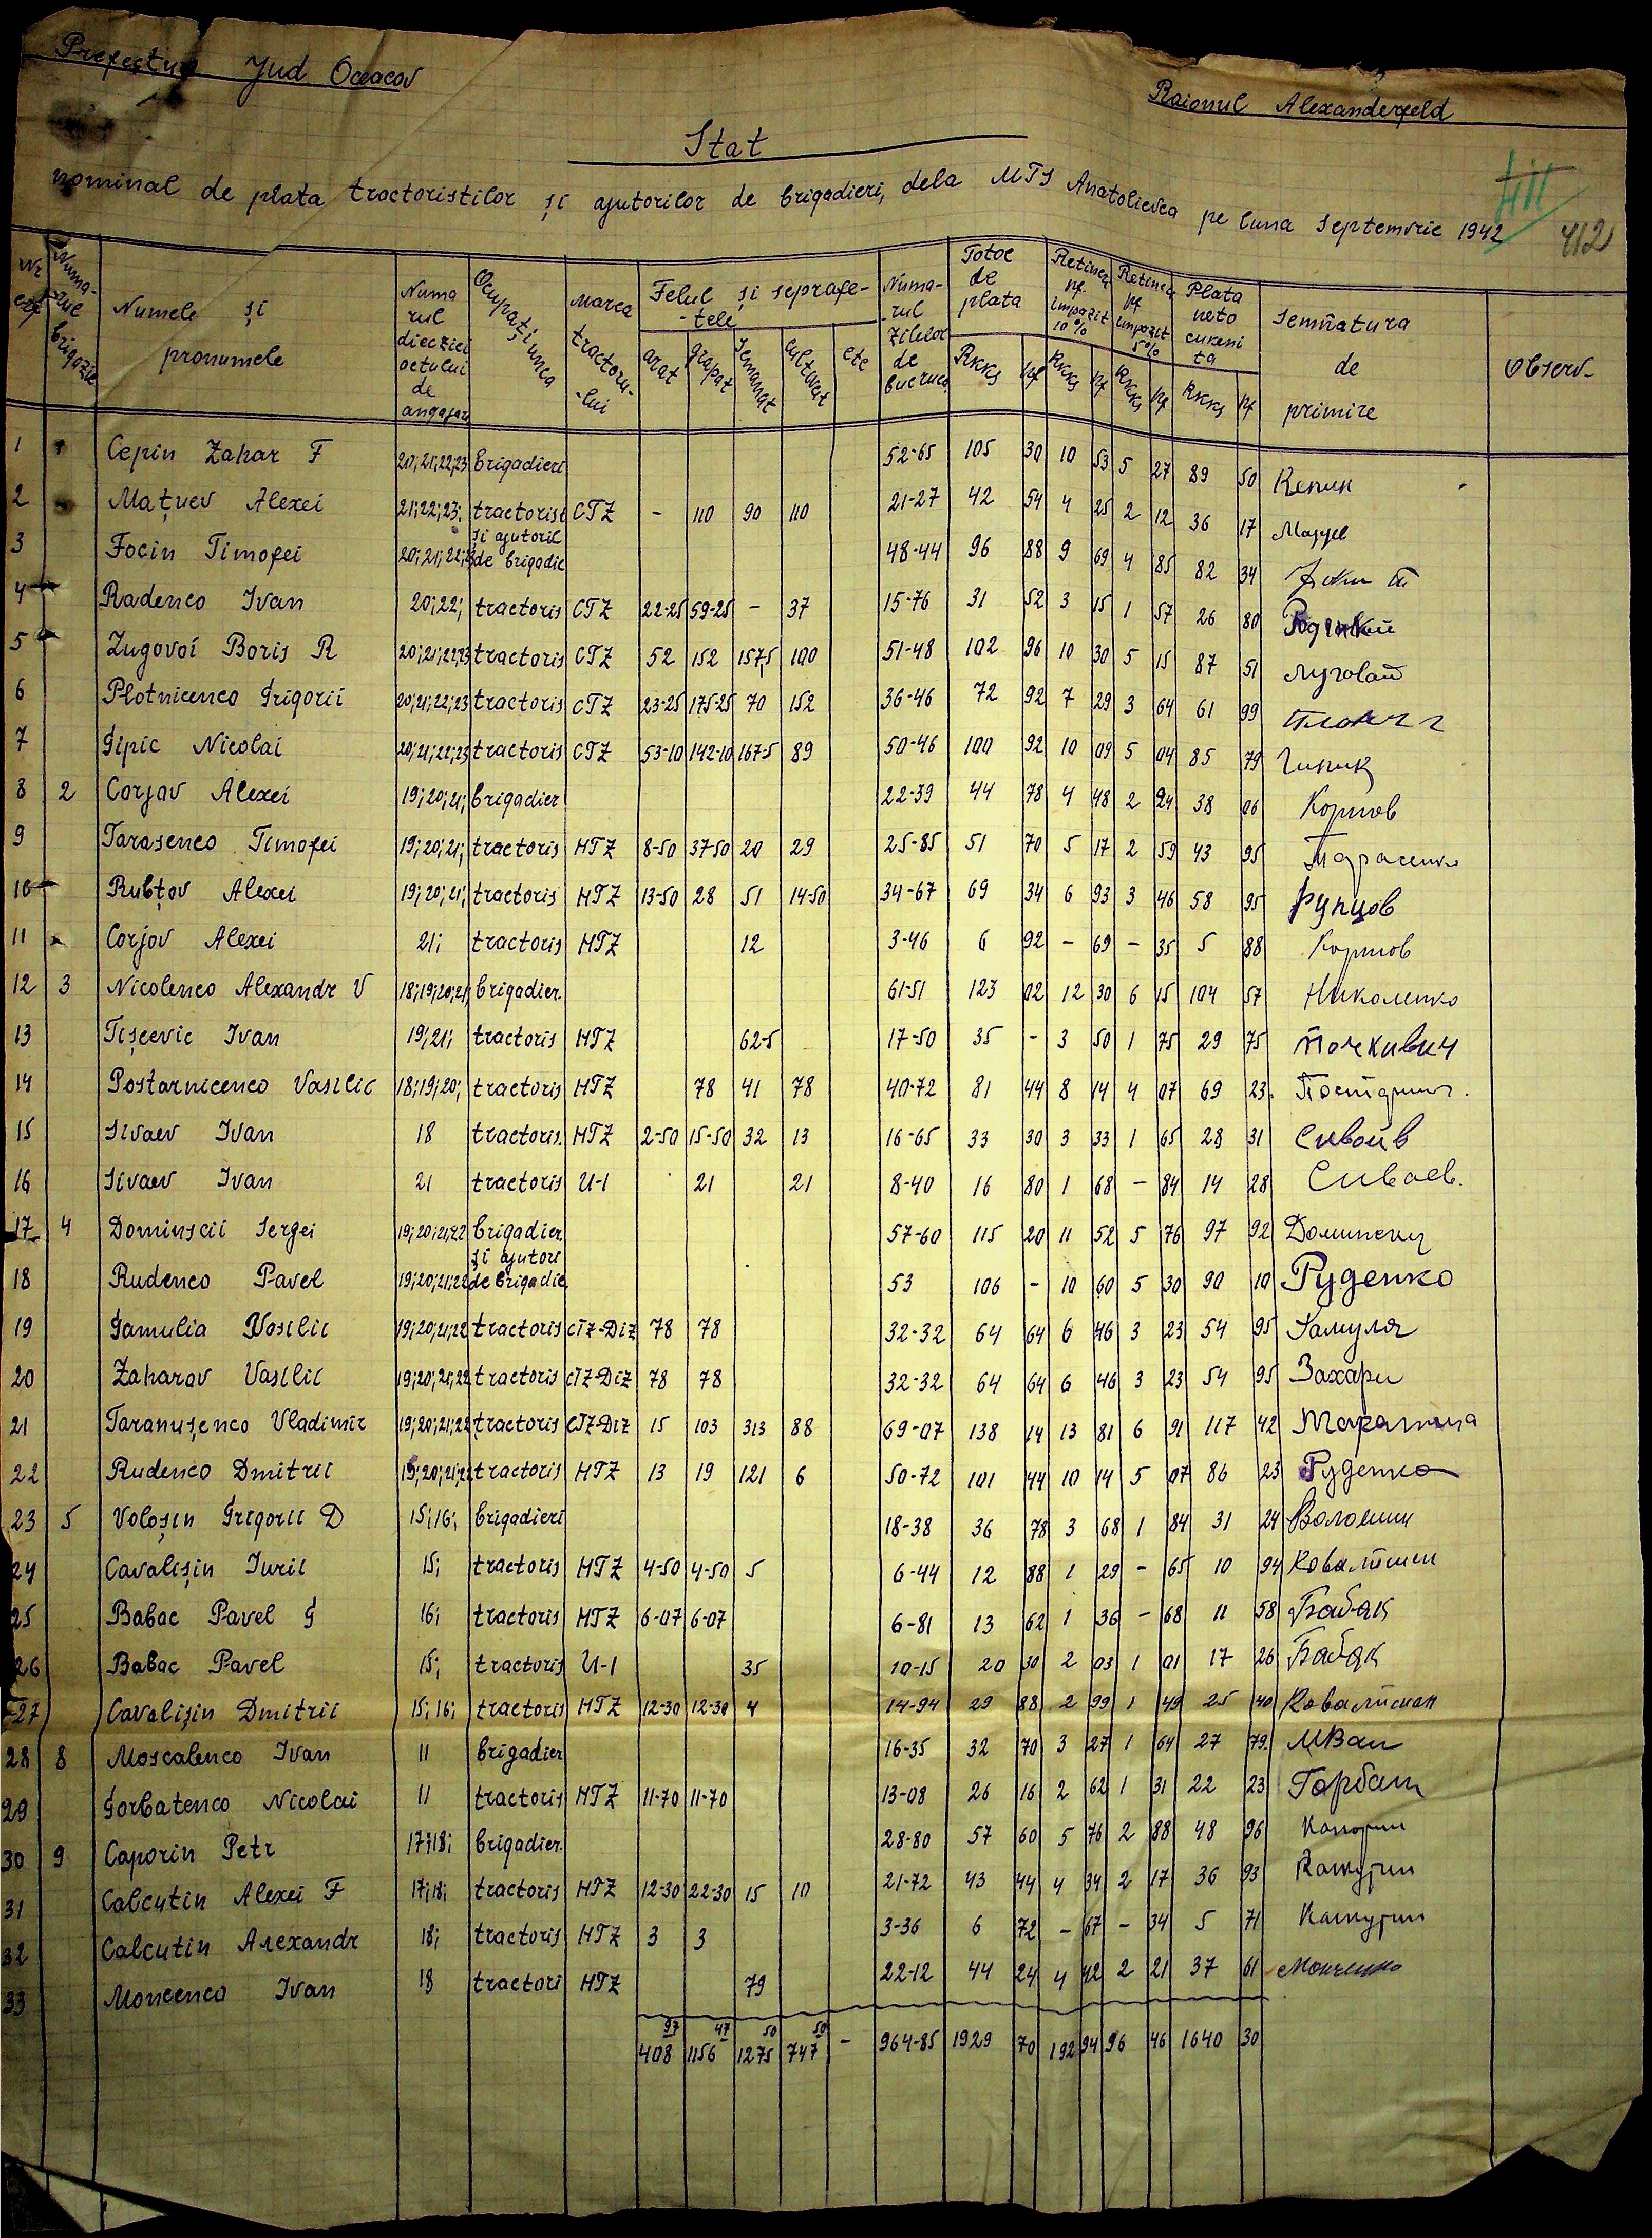 Prefectura Jud Oceacov
Raionul Alexanderfeld
Stat
nominal de plata tractoristilor și ajutorilor de brigadieri, dela MTS Anatolievca pe luna Septemvrie 1942
412
Numele și pronumele
Ocupațiunea
Marca tractorului
Felul și seprafetele
arat grapat semanat cultivat etc
Numarul zilelor de
Totoe de plata
Retinea pf. impozit 10%
Retinea pf impozit 5%
Plata neto
Semñatura de primire
Observ-
Rkks pf Rkks pf Rkks pf Rkks pf
1 Cepin Zahar F 20;21;22;23 brigadieri 52-65 105 30 10 53 5 27 89 50 Кепин
2 Mațuev Alexei 21;22;23; tractorist CTZ - 110 90 110 21-27 42 54 4 25 2 12 36 17
3 Focin Timofei 20;21;22; și ajutoril de brigadie 48-44 96 88 9 69 4 85 82 34
4 Radenco Ivan 20;22; tractoris CTZ 22-25 59-25 - 37 15-76 31 52 3 15 1 57 26 80
5 Zugovoi Boris R 20;21;22;23 tractoris CTZ 52 152 157,5 100 51-48 102 96 10 30 5 15 87 51 Луговой
6 Plotnicenco Grigorii 20;21;22;23 tractoris CTZ 23-25 175-25 70 152 36-46 72 92 7 29 3 64 61 99
7 Gipic Nicolai 20;21;22;23 tractoris CTZ 53-10 142-10 167-5 89 50-46 100 92 10 09 5 04 85 79 Гипик
8 2 Corjav Alexei 19;20;21; brigadier 22-39 44 78 4 48 2 24 38 06 Коржов
9 Tarasenco Timofei 19;20;21; tractoris HTZ 8-50 37-50 20 29 25-85 51 70 5 17 2 59 43 95 Тарасенко
10 Rubțov Alexei 19;20;21; tractoris HTZ 13-50 28 51 14-50 34-67 69 34 6 93 3 46 58 95 Рупцов
11 Corjov Alexei 21; tractoris HTZ 12 3-46 6 92 - 69 - 35 5 88 Коржов
12 3 Nicolenco Alexandr V 18;19;20;21 brigadier 61-51 123 02 12 30 6 15 104 57 Николенко
13 Tișcevic Ivan 19;21; tractoris HTZ 62-5 17-50 35 - 3 50 1 75 29 75
14 Postarnicenco Vasilic 18;19;20; tractoris HTZ 78 41 78 40-72 81 44 8 14 4 07 69 23
15 Sivaev Ivan 18 tractoris. HTZ 2-50 15-50 32 13 16-65 33 30 3 33 1 65 28 31
16 Sivaev Ivan 21 tractoris U-1 21 21 8-40 16 80 1 68 - 84 14 28 Сиваев.
17 4 Dominscii Sergei 19;20;21;22 brigadier 57-60 115 20 11 52 5 76 97 92
18 Rudenco Pavel 19;20;21;22 și ajutori de brigadie 53 106 - 10 60 5 30 90 10 Руденко
19 Gamulia Vasilic 19;20;21;22 tractoris CTZ-Diz 78 78 32-32 64 64 6 46 3 23 54 95 Гамуля
20 Zaharov Vasilic 19;20;21;22 tractoris CTZ-Diz 78 78 32-32 64 64 6 46 3 23 54 95
21 Taranușenco Vladimir 19;20;21;22 tractoris CTZ-Diz 15 103 313 88 69-07 138 14 13 81 6 91 117 42
22 Rudenco Dmitrii 19;20;21;22 tractoris HTZ 13 19 121 6 50-72 101 44 10 14 5 07 86 23 Руденко
23 5 Voloșin Grigorii D 15;16; brigadieri 18-38 36 78 3 68 1 84 31 24 Волошин
24 Cavalișin Iurii 15; tractoris HTZ 4-50 4-50 5 6-44 12 88 1 29 - 65 10 94
25 Babac Pavel G 16; tractoris HTZ 6-07 6-07 6-81 13 62 1 36 - 68 11 58 Бабак
26 Babac Pavel 15; tractoris U-1 35 10-15 20 30 2 03 1 01 17 26 Бабак
27 Cavalișin Dmitrii 15; 16; tractoris HTZ 12-30 12-30 4 14-94 29 88 2 99 1 49 25 40
28 8 Moscalenco Ivan 11 brigadier 16-35 32 70 3 27 1 64 27 79
29 Gorbatenco Nicolai 11 tractoris HTZ 11-70 11-70 13-08 26 16 2 62 1 31 22 23
30 9 Caporin Petr 17;18; brigadier. 28-80 57 60 5 76 2 88 48 96 Капорин
31 Calcutin Alexei F 17;18; tractoris HTZ 12-30 22-30 15 10 21-72 43 44 4 34 2 17 36 93
32 Calcutin Alexandr 18; tractoris HTZ 3 3 3-36 6 72 - 67 - 34 5 71
33 Moncenco Ivan 18 tractori HTZ 79 22-12 44 24 4 42 2 21 37 61 Монченко
408 97 1156 47 1275 50 747 50 - 964-85 1929 70 192 94 96 46 1640 30